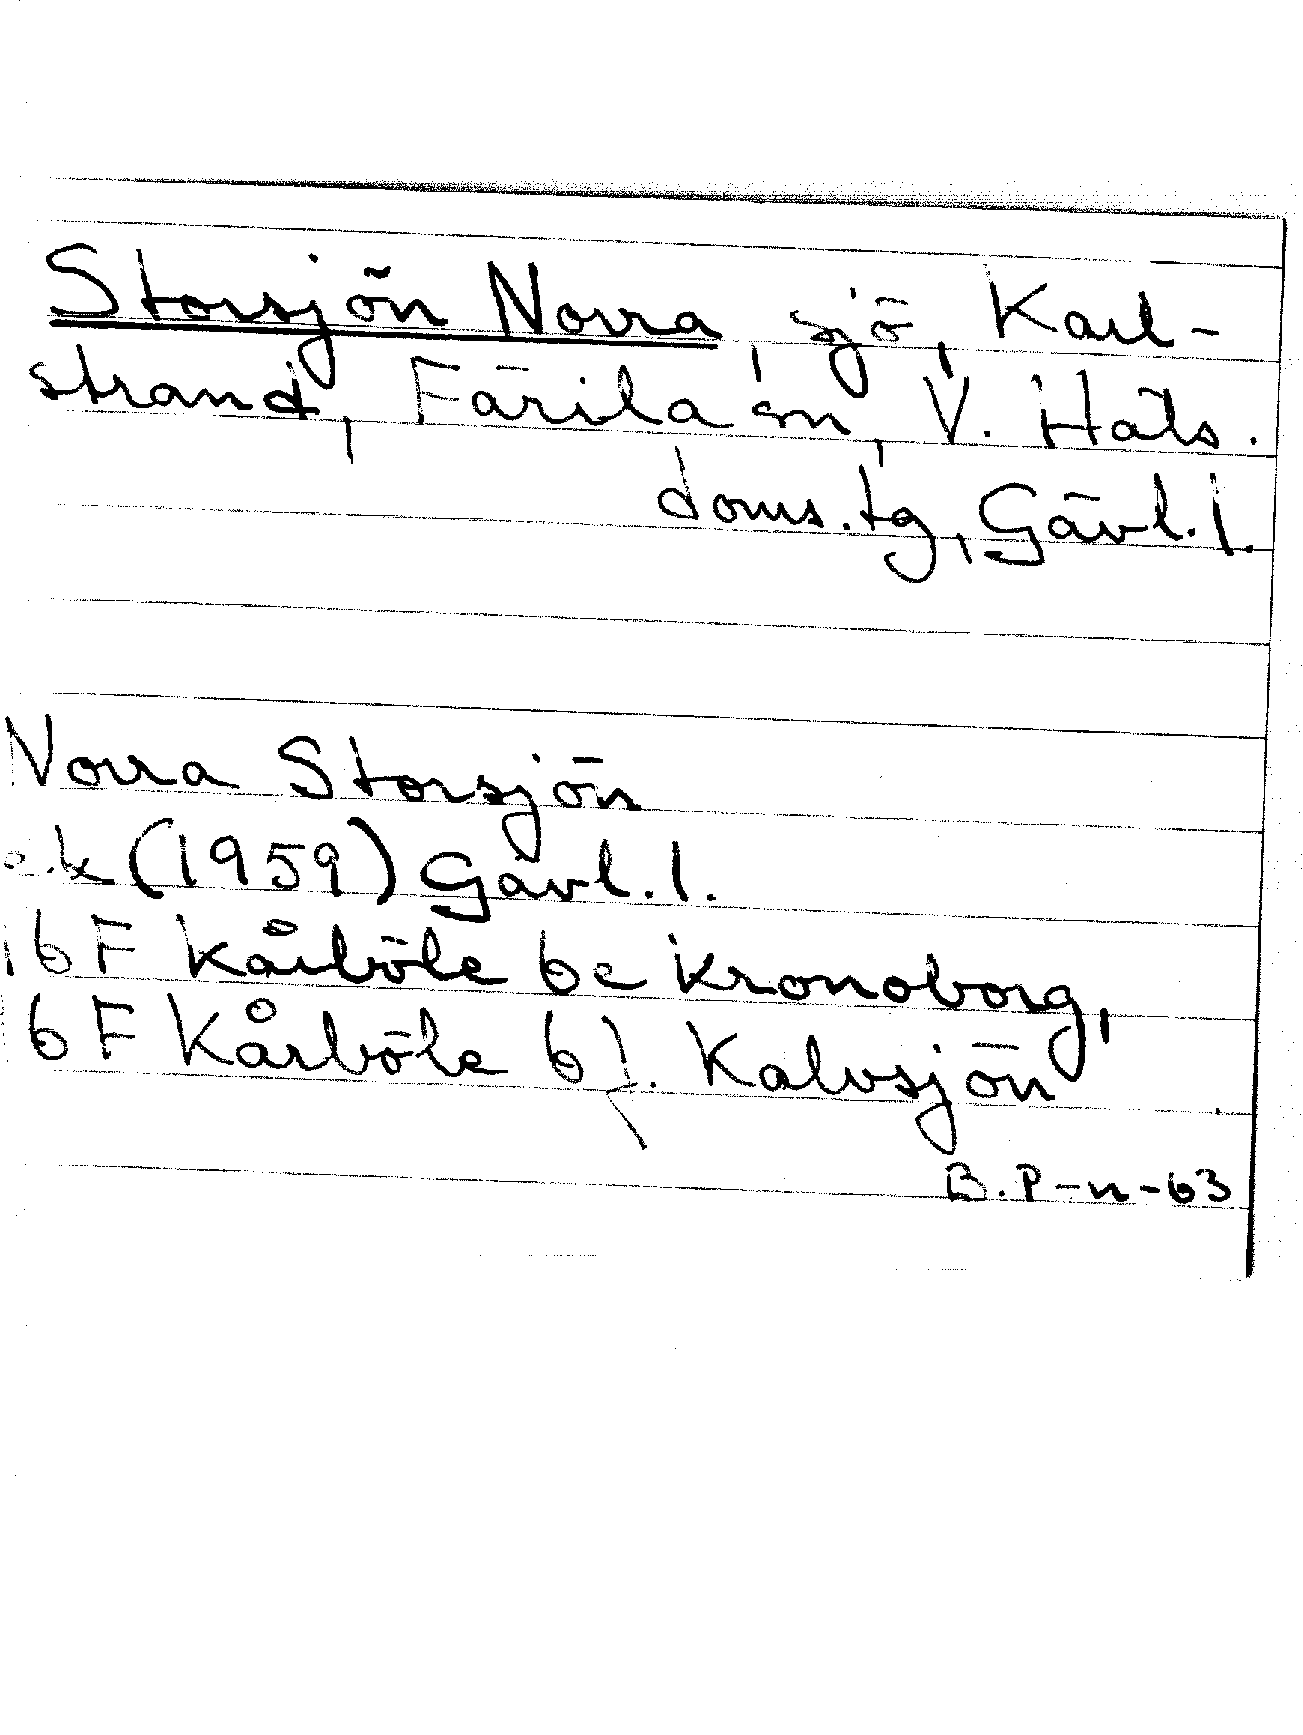 Storsjön Norra, sjö, Karl-
strand, Färila sn, V. Häls.
doms.tg, Gävl.l.
Norra Storsjön
e.k (1959) Gävl.l.
16 F Kårböle 6e Kronoborg,
16 F Kårböle 6f. Kalvsjön
B.P-n-63